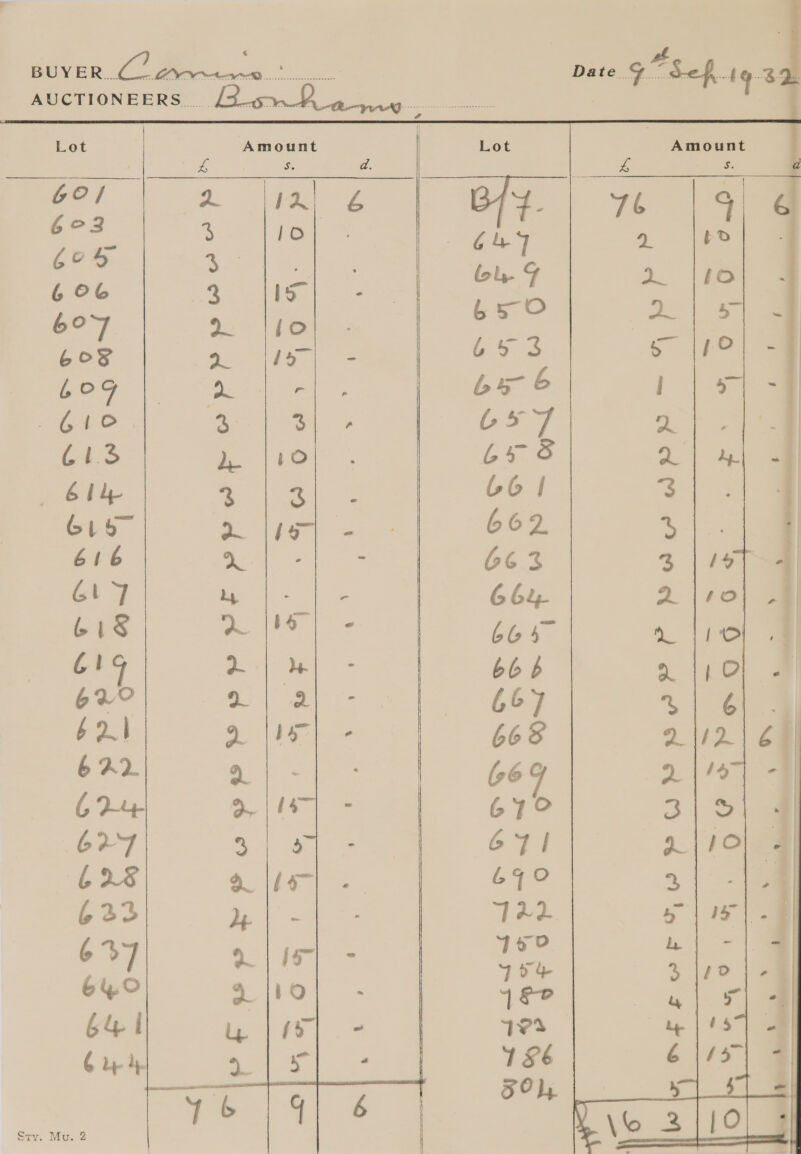 BUYER Comins Date 9th Sep. 1932
AUCTIONEERS Bonhams
Lot Amount
£ s. d.
601 2 12 6
603 3 10 -
605 3 - -
606 3 15 -
607 2 10 -
608 2 15 -
609 2 - -
610 3 3 -
613 4 10 -
614 3 3 -
615 2 15 -
616 2 - -
617 4 - -
618 2 15 -
619 2 4 -
620 2 2 -
621 2 15 -
622 2 - -
624 2 15 -
627 3 5 -
628 2 15 -
633 4 - -
637 2 15 -
640 2 10 -
641 4 15 -
644 2 5 -
76 9 6
Sty. Mu. 2
Lot Amount
£ s. d
B/f. 76 9 6
647 2 10 -
649 2 10 -
650 2 5 -
653 5 10 -
656 1 5 -
657 2 - -
658 2 4 -
661 3 - -
662 3 - -
663 3 15 -
664 2 10 -
665 2 10 -
666 2 10 -
667 3 6 -
668 2 12 6
669 2 15 -
670 3 3 -
671 2 10 -
690 3 - -
722 5 15 -
750 4 - -
754 3 10 -
780 4 5 -
4 15 -
786 6 15 -
804 5 5 -
£163 10 -